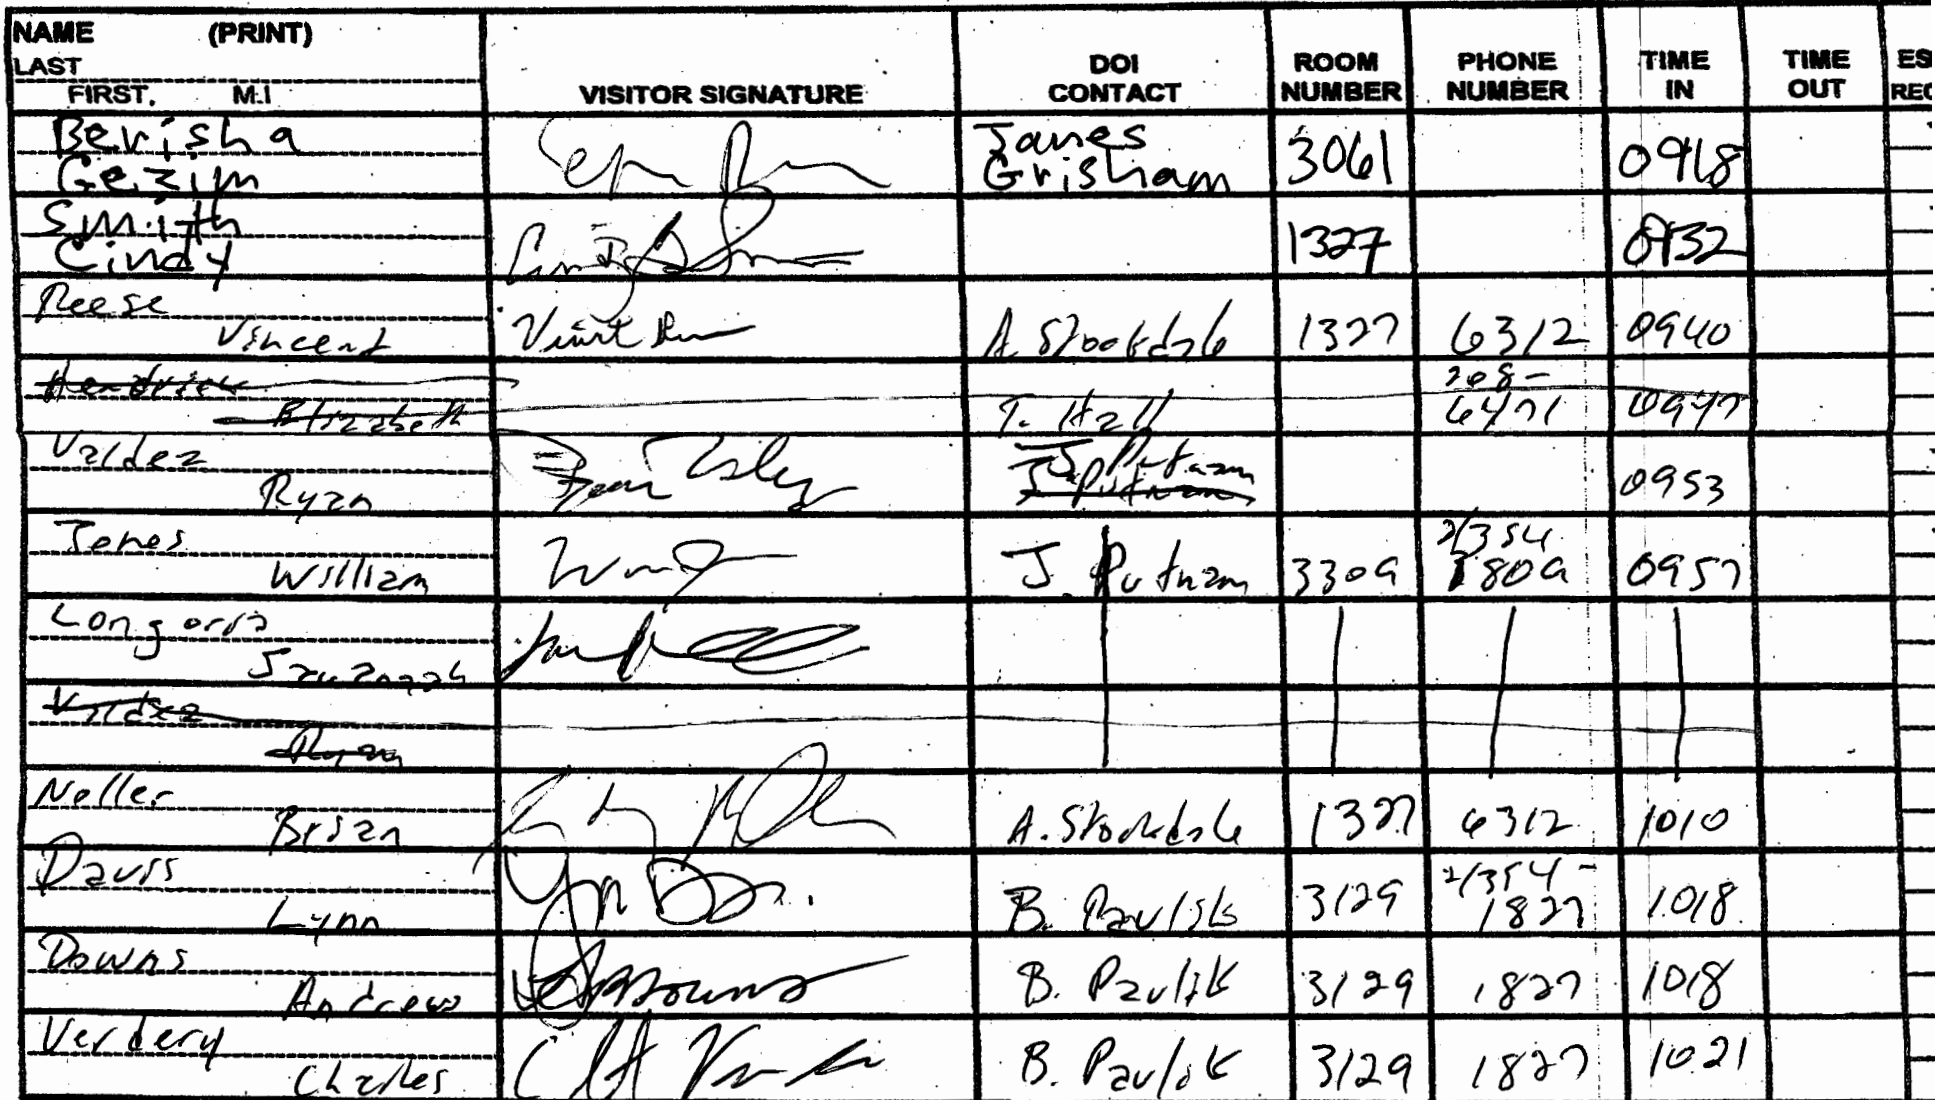 NAME (PRINT)
LAST
FIRST, M.I
VISITOR SIGNATURE
DOI CONTACT
ROOM NUMBER
PHONE NUMBER
TIME IN
TIME OUT
ES
REC
Berisha
Gezim
James
Grisham
3061
0918
Smith
Cindy
1327
0932
Reese
Vincent
A. Stockdale
1327
6312
0940
Hendrick
Elizabeth
T. Hall
208-
6471
0947
Valdez
Ryan
J. Putnam
J. Putnam
0953
Jones
William
J. Putnam
3309
2/354
1809
0957
Longoria
Savannah
Valdez
Ryan
Neller
Brian
A. Stockdale
1327
6312
1010
Davis
Lynn
B. Pavlik
3129
2/354-
1827
1018
Downs
Andrew
B. Pavlik
3129
1827
1018
Verdery
Charles
B. Pavlik
3129
1827
1021